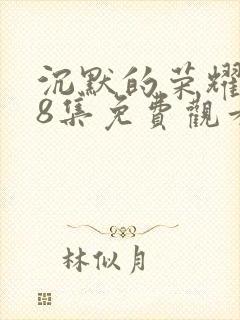 沉默的荣耀
8集免費觀
林似月